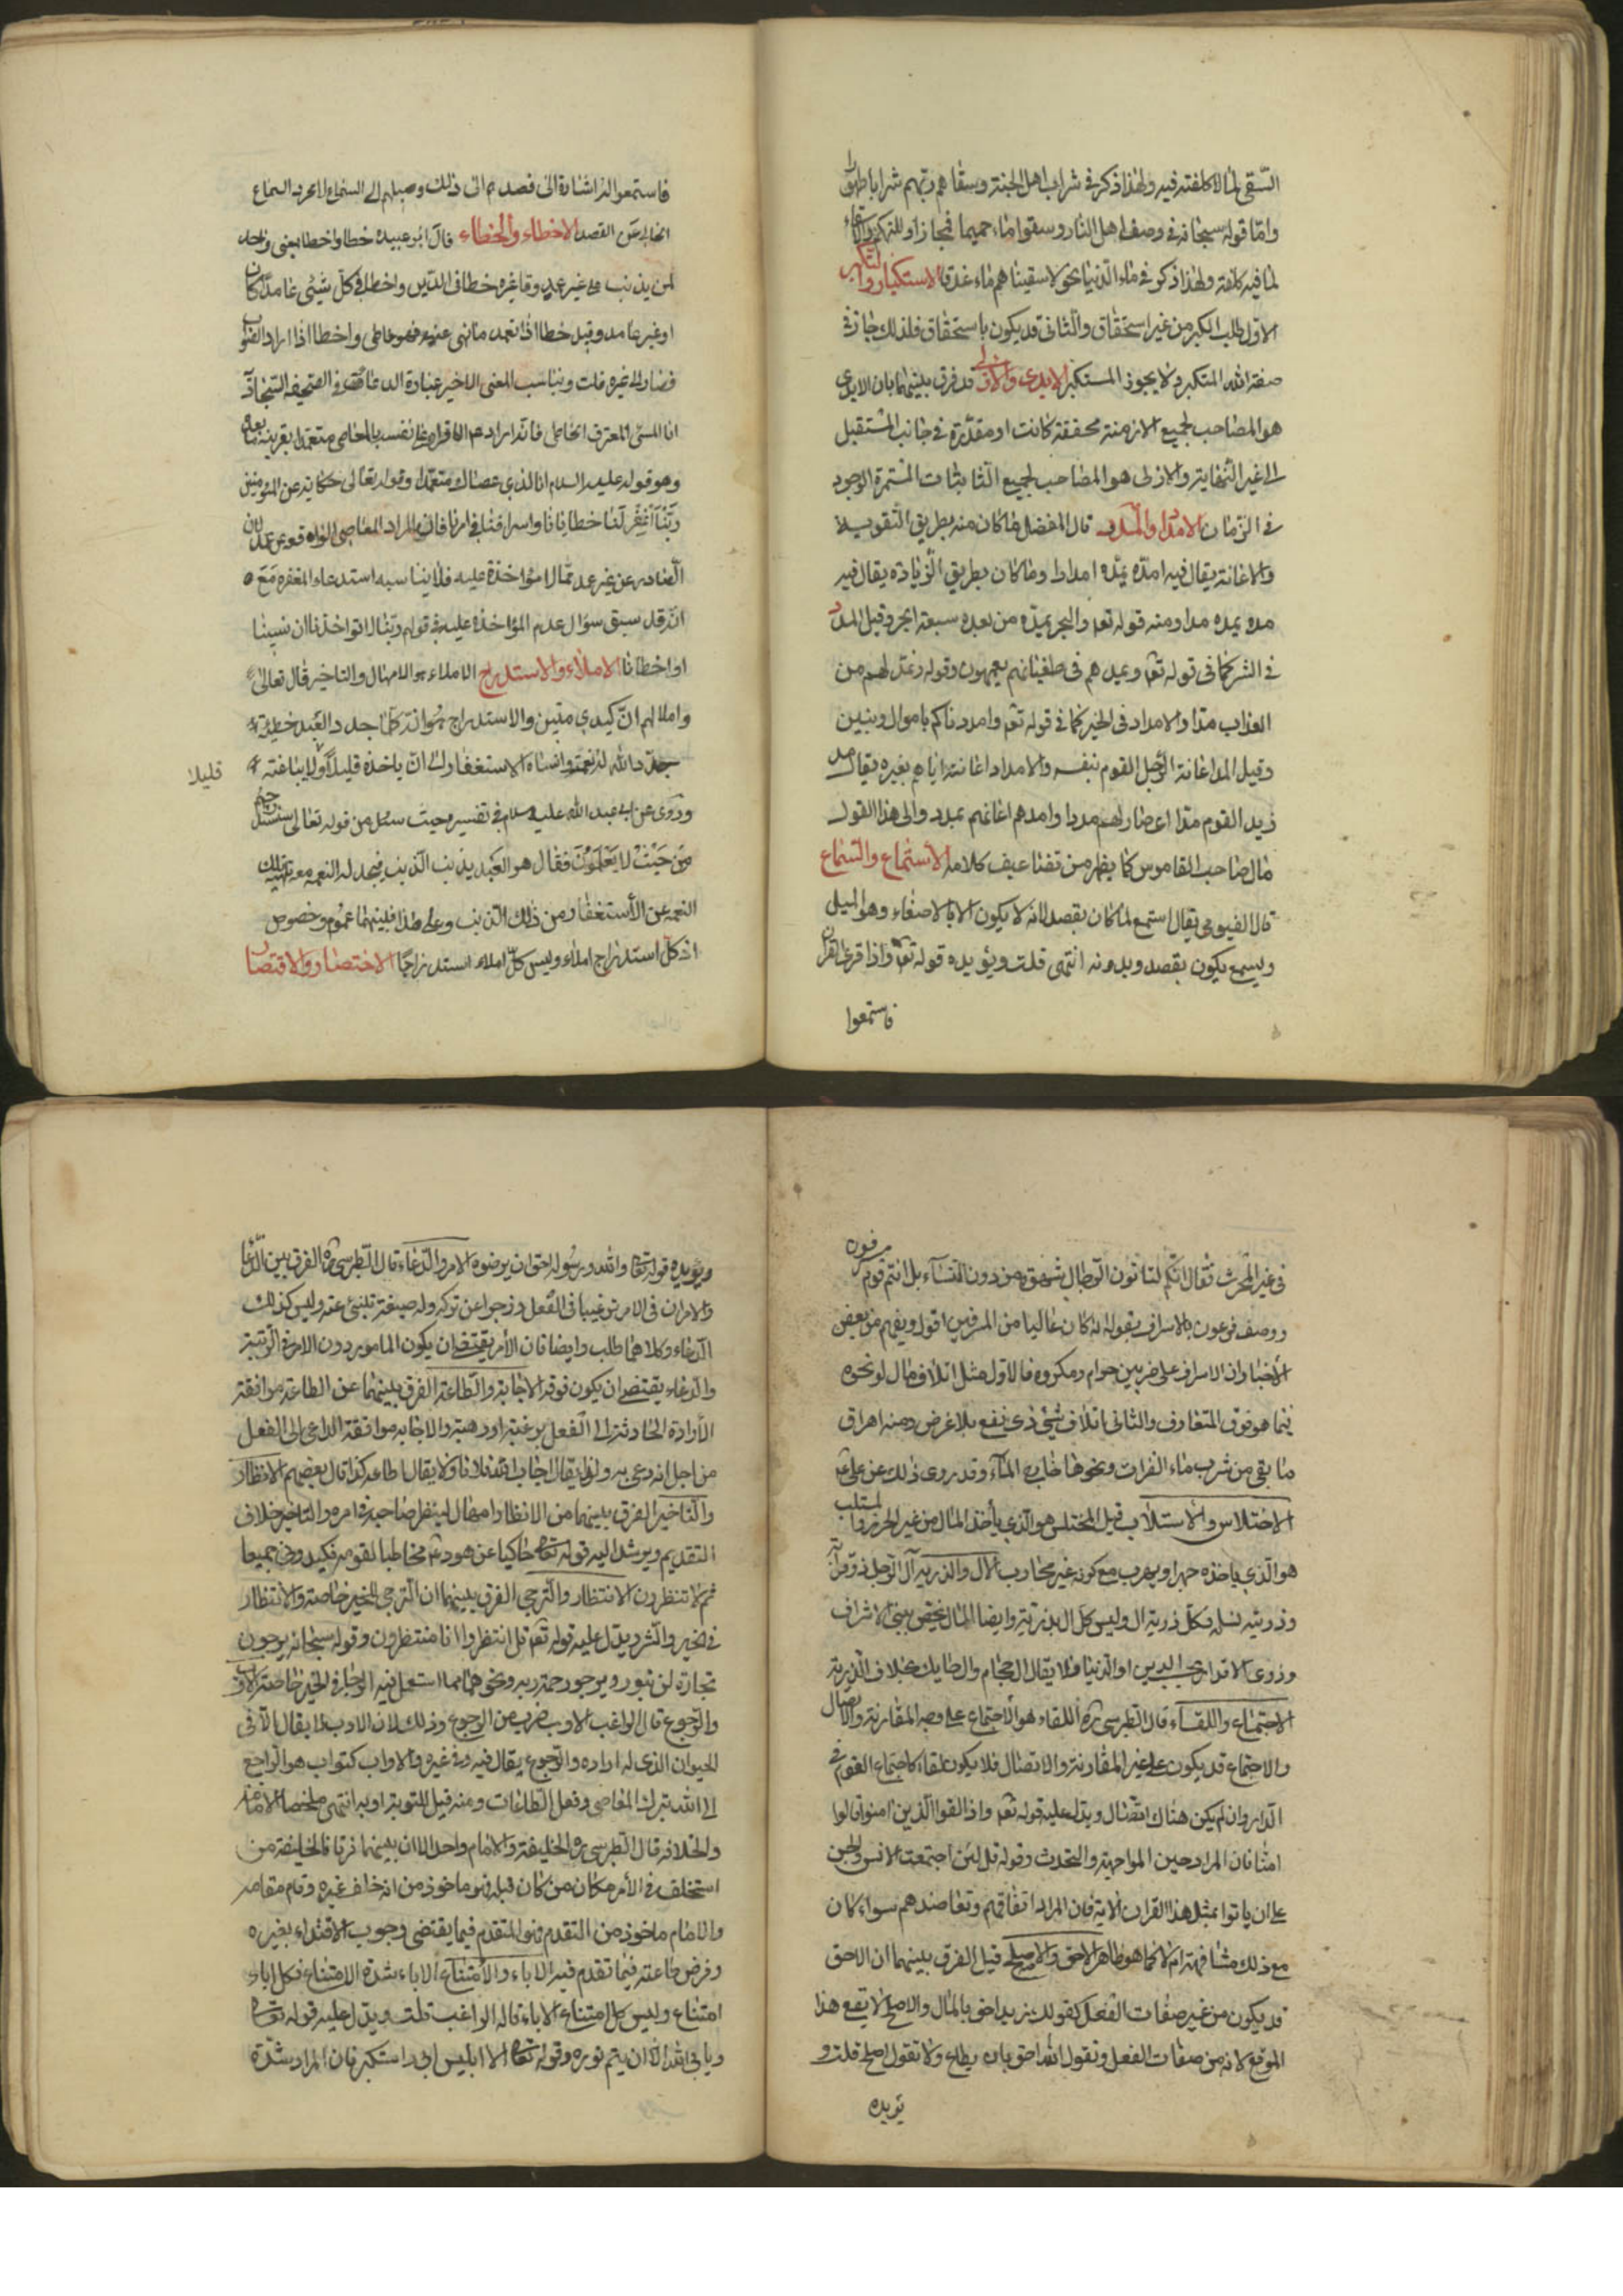 السّقى لما لا كلفة فيه ولهذا ذكر في شراب اهل الجنة وسقاهم ربّهم شرابا طهورا
وامّا قوله سبحانه في وصف اهل النار وسقوا ماء حميما فمجاز او للتهكم والاسقاء
لما فيه كلفة ولهذا ذكر في ماء الدنيا نحو لاسقيناهم ماء غدقا الاستكبار والتكبر
الاوّل طلب الكبر من غير استحقاق والثانى قد يكون باستحقاق فلذلك جاز في
صفة الله المتكبر ولا يجوز المستكبر الابدى والازلى قد فرق بينهما بان الابدى
هو المصاحب لجميع الازمنة محققة كانت او مقدّرة في جانب المستقبل
الى غير النّهاية والازلى هو المصاحب لجميع الثابتات المستمرة الوجود
في الزّمان الامداد والمدد قال المفضل ما كان منه بطريق التقوية
والاعانة يقال فيه امدّه يمدّه امدادا وما كان بطريق الزّيادة يقال فيه
مده يمده مدا ومنه قوله تعم والبحر يمدّه من بعده سبعة ابحر وقيل المد
في الشر كما في قوله تعم ويمدهم في طغيانهم يعمهون وقوله ونمدّ لهم من
العذاب مدّا والامداد في الخير كما في قوله تعم وامددناكم باموال وبنين
وقيل المد اعانة الرّجل القوم بنفسه والامداد اعانته اياهم بغيره يقال مد
زيد القوم مدّا اى صار لهم مددا وامدهم اعانهم بمدد والى هذا القول
مال صاحب القاموس كما يظهر من تضاعيف كلامه الاستماع والسّماع
قال الفيومى يقال استمع لما كان بقصد لانّه لا يكون الا بالاصغاء وهو الميل
ويسمع يكون بقصد وبدونه انتهى قلت ويؤيده قوله تعم واذا قرئ القران
فاستمعوا
فاستمعوا له اشارة الى قصدهم الى ذلك وميلهم الى السماع لا مجرد السماع
الخالى عن القصد الاخطاء والخطاء قال ابو عبيدة خطا واخطا بمعنى واحد
لمن يذنب على غير عمد وقال غيره خطا في الدّين واخطا في كلّ شيئى عامدا كان
او غير عامد وقيل خطا اذا تعمد ما نهى عنه فهو خاطى واخطا اذا اراد الصّواب
فصار الى غيره قلت ويناسب المعنى الاخير عبارة الدعا في الصّحيفة السّجاديّه
انا المسئ المعترف الخاطى فانّه اراد الاقرار على نفسه بالمعاصى متعمدا بقرينة ما بعده
وهو قوله عليه السلم انا الذى عصاك متعمّدا وقوله تعالى حكاية عن المؤمنين
ربّنا اغفر لنا خطايانا واسرافنا في امرنا فان المراد المعاصى الواقعه عن عمد لان
الصّادر عن غير عمد ممّا لا مؤاخذة عليه فلا يناسبه استدعاء المغفره مع
انّه قد سبق سؤال عدم المؤاخذة عليه في قولهم ربّنا لا تؤاخذنا ان نسينا
او اخطانا الاملاء والاستدراج الاملاء هو الامهال والتاخير قال تعالى
واملى لهم انّ كيدى متين والاستدراج هو انّه كلّما جدد العبد خطيئة
جدّد الله له نعمة وانساه الاستغفار الى ان ياخذه قليلا ولا يباغته
قليلا
وروى عن ابى عبد الله عليه السلام في تفسيره حيث سئل من قوله تعالى سنستدرجهم
من حيث لا يعلمون فقال هو العبد يذنب الذنب فيجدد له النعمة معه تلهيه تلك
النعمه عن الاستغفار من ذلك الذنب وعلى هذا فبينهما عموم وخصوص
اذ كل استدراج املاء وليس كلّ املاء استدراجا الاختصار والاقتصار
في غير الحرث فقال انّكم لتاتون الرّجال شهوة من دون النّسآء بل انتم قوم مسرفون
ووصف فرعون بالاسراف بقوله انه كان عاليا من المسرفين اقول ويفهم من بعض
الاخبار ان الاسراف على ضربين حرام ومكروه فالاوّل مثل اتلاف مال ونحوه
فيما هو فوق المتعارف والثانى اتلاف شئ ذى نفع بلا غرض ومنه اهراق
ما بقى من شرب ماء الفرات ونحوها خارج المآء وقد روى ذلك عن على ع
الاختلاس والاستلاب قيل المختلس هو الّذى ياخذ المال من غير الحرز والمستلب
هو الّذى ياخذه جهرا ويهرب مع كونه غير محارب الآل والذرية آل الرّجل ذو قرابته
وذريته نسله فكلّ ذرية ال وليس كل ال بذرية وايضا الآل يختص بذى الاشراف
وذوى الاقدار بحسب الدين او الدّنيا فلا يقال ال حجام وال حايك بخلاف الذّرية
الاجتماع واللقاء قال الطبرسى ره اللقاء هو الاجتماع على وجه المقاربة والاتصال
والاجتماع قد يكون على غير المقاربة والاتصال فلا يكون لقاء كاجتماع القوم في
الدار وان لم يكن هناك اتصال ويدل عليه قوله تعم واذا لقوا الّذين امنوا قالوا
امنّا فان المراد حين المواجهة والتحدث وقوله قل لئن اجتمعت الانس والجن
على ان ياتوا بمثل هذا القران الاية فان المراد اتفاقهم وتعاضدهم سواء كان
مع ذلك مشافهة ام لا كما هو ظاهر الاحق والاصلح قيل الفرق بينهما ان الاحق
قد يكون من غير صفات الفعل كقولك زيد احق بالمال والاصلح لا يقع هذا
الموقع لانه من صفات الفعل وتقول الله احق بان يطاع ولا تقول اصلح قلت و
يؤيده
ويؤيده قوله تعالى والله ورسوله احق ان يرضوه الامر والدّعاء قال الطبرسى ره الفرق بين الدّعا
والامر ان في الامر ترغيبا في الفعل وزجرا عن تركه وله صيغة تنبئ عنه وليس كذلك
الدّعاء وكلاهما طلب وايضا فان الأمر يقتضى ان يكون المامور دون الامر في الرّتبة
والدعاء يقتضى ان يكون فوقه الاجابة والطّاعة الفرق بينهما عن الطاعة موافقة
الأرادة الحادثة الى الفعل برغبة او رهبة والاجابه موافقة الداعى الى الفعل
من اجل انه دعى به ولذا يقال اجاب الله فلانا ولا يقال اطاعه كذا قال بعضهم الانظار
والتّاخير الفرق بينهما من الانظار امهال لينظر صاحبه في امره والتاخير خلاف
التقديم ويرشد اليه قوله تعالى حاكيا عن هود ع مخاطبا لقومه فكيدونى جميعا
ثم لا تنظرون الانتظار والترجى الفرق بينهما ان الترجى للخير خاصة والانتظار
في الخير والشر ويدل عليه قوله تعم قل انتظروا انا منتظرون وقوله سبحانه يرجون
تجارة لن تبور ويرجو رحمة ربه ونحوهما مما استعمل فيه الرّجاء في الخير خاصة الاوب
والرّجوع قال الراغب الاوب ضرب من الرجوع وذلك لان الاوب لا يقال الّا في
الحيوان الذى له اراده والرّجوع يقال فيه وفى غيره والاواب كتواب هو الرّاجع
الى الله بترك المعاصى وفعل الطّاعات ومنه قيل للتوبة اوبه انتهى ملخصا الامامة
والخلافه قال الطبرسى ره الخليفة والامام واحد الا ان بينهما فرقا فالخليفة من
استخلف في الأمر مكان من كان قبله فهو ماخوذ من انه خلف غيره وقام مقامه
والامام ماخوذ من التقدم فهو المتقدم فيما يقتضى وجوب الاقتداء بغيره
وفرض طاعته فيما تقدم فيه الاباء والامتناع الاباء شدة الامتناع فكل اباء
امتناع وليس كل امتناع الاباء قاله الراغب قلت ويدل عليه قوله تعالى
ويابى الله الّا ان يتم نوره وقوله تعالى الا ابليس ابى واستكبر فان المراد شدة